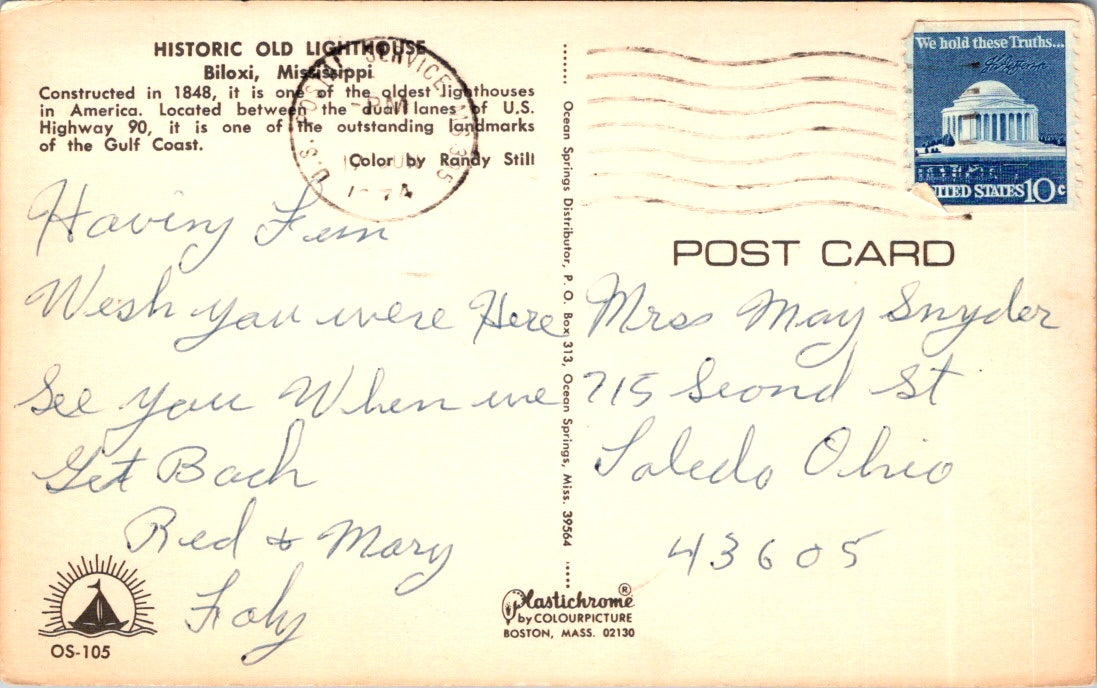 HISTORIC OLD LIGHTHOUSE
Biloxi, Mississippi
Constructed in 1848, it is one of the oldest lighthouses
in America. Located between the dual lanes of U.S.
Highway 90, it is one of the outstanding landmarks
of the Gulf Coast.
Color by Randy Still
U.S. POSTAL SERVICE
1974
We hold these Truths...
UNITED STATES 10c
POST CARD
Having Fun
Wish you were Here
See you When we
Get Back
Red & Mary
Foly
Mrs May Snyder
715 Seond St
Toledo Ohio
43605
Ocean Springs Distributor, P. O. Box 313, Ocean Springs, Miss. 39564
Plastichrome®
by COLOURPICTURE
BOSTON, MASS. 02130
OS-105